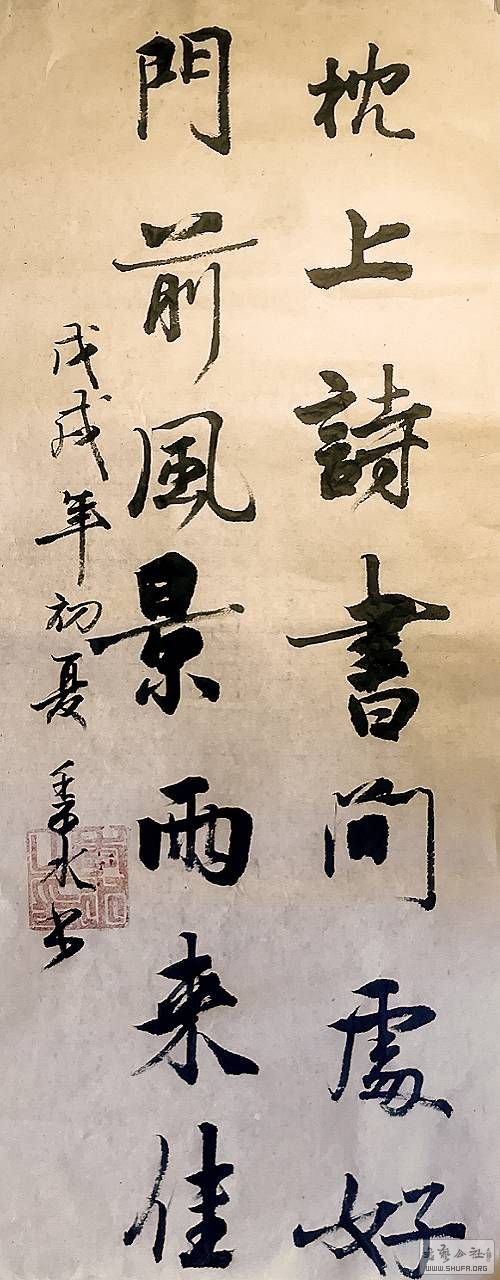 枕上詩書閒處好
門前風景雨來佳
戊戌年初夏 水书
WWW.SHUFA.ORG